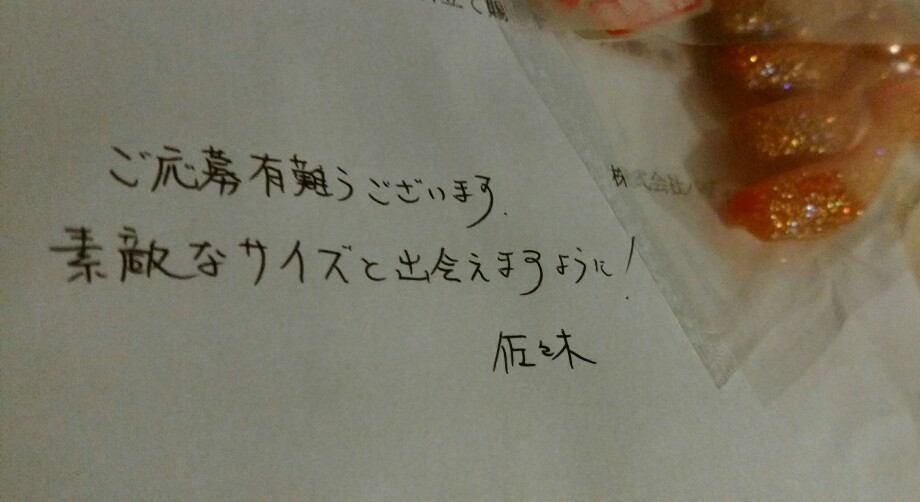 立て賜
ご応募有難うございます.
株式会社
素敵なサイズと出会えますように!
佐々木